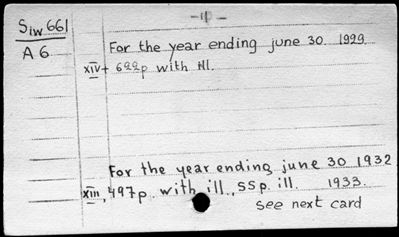 Siw 661
A 6
For the year ending june 30. 1929
XIV + 622p with ill.
For the year ending june 30 1932
XIII, 497p. with ill., 55p. ill. 1933.
see next card